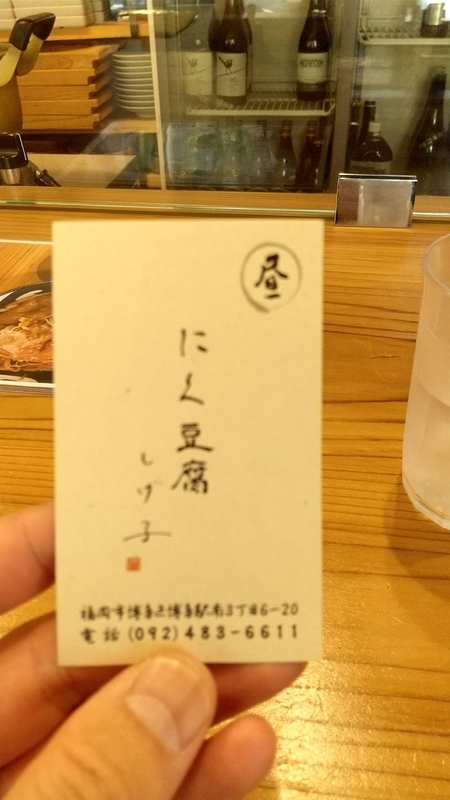 昼
にく豆腐
しげ子
福岡市博多区博多駅南3丁目6-20
電話(092)483-6611